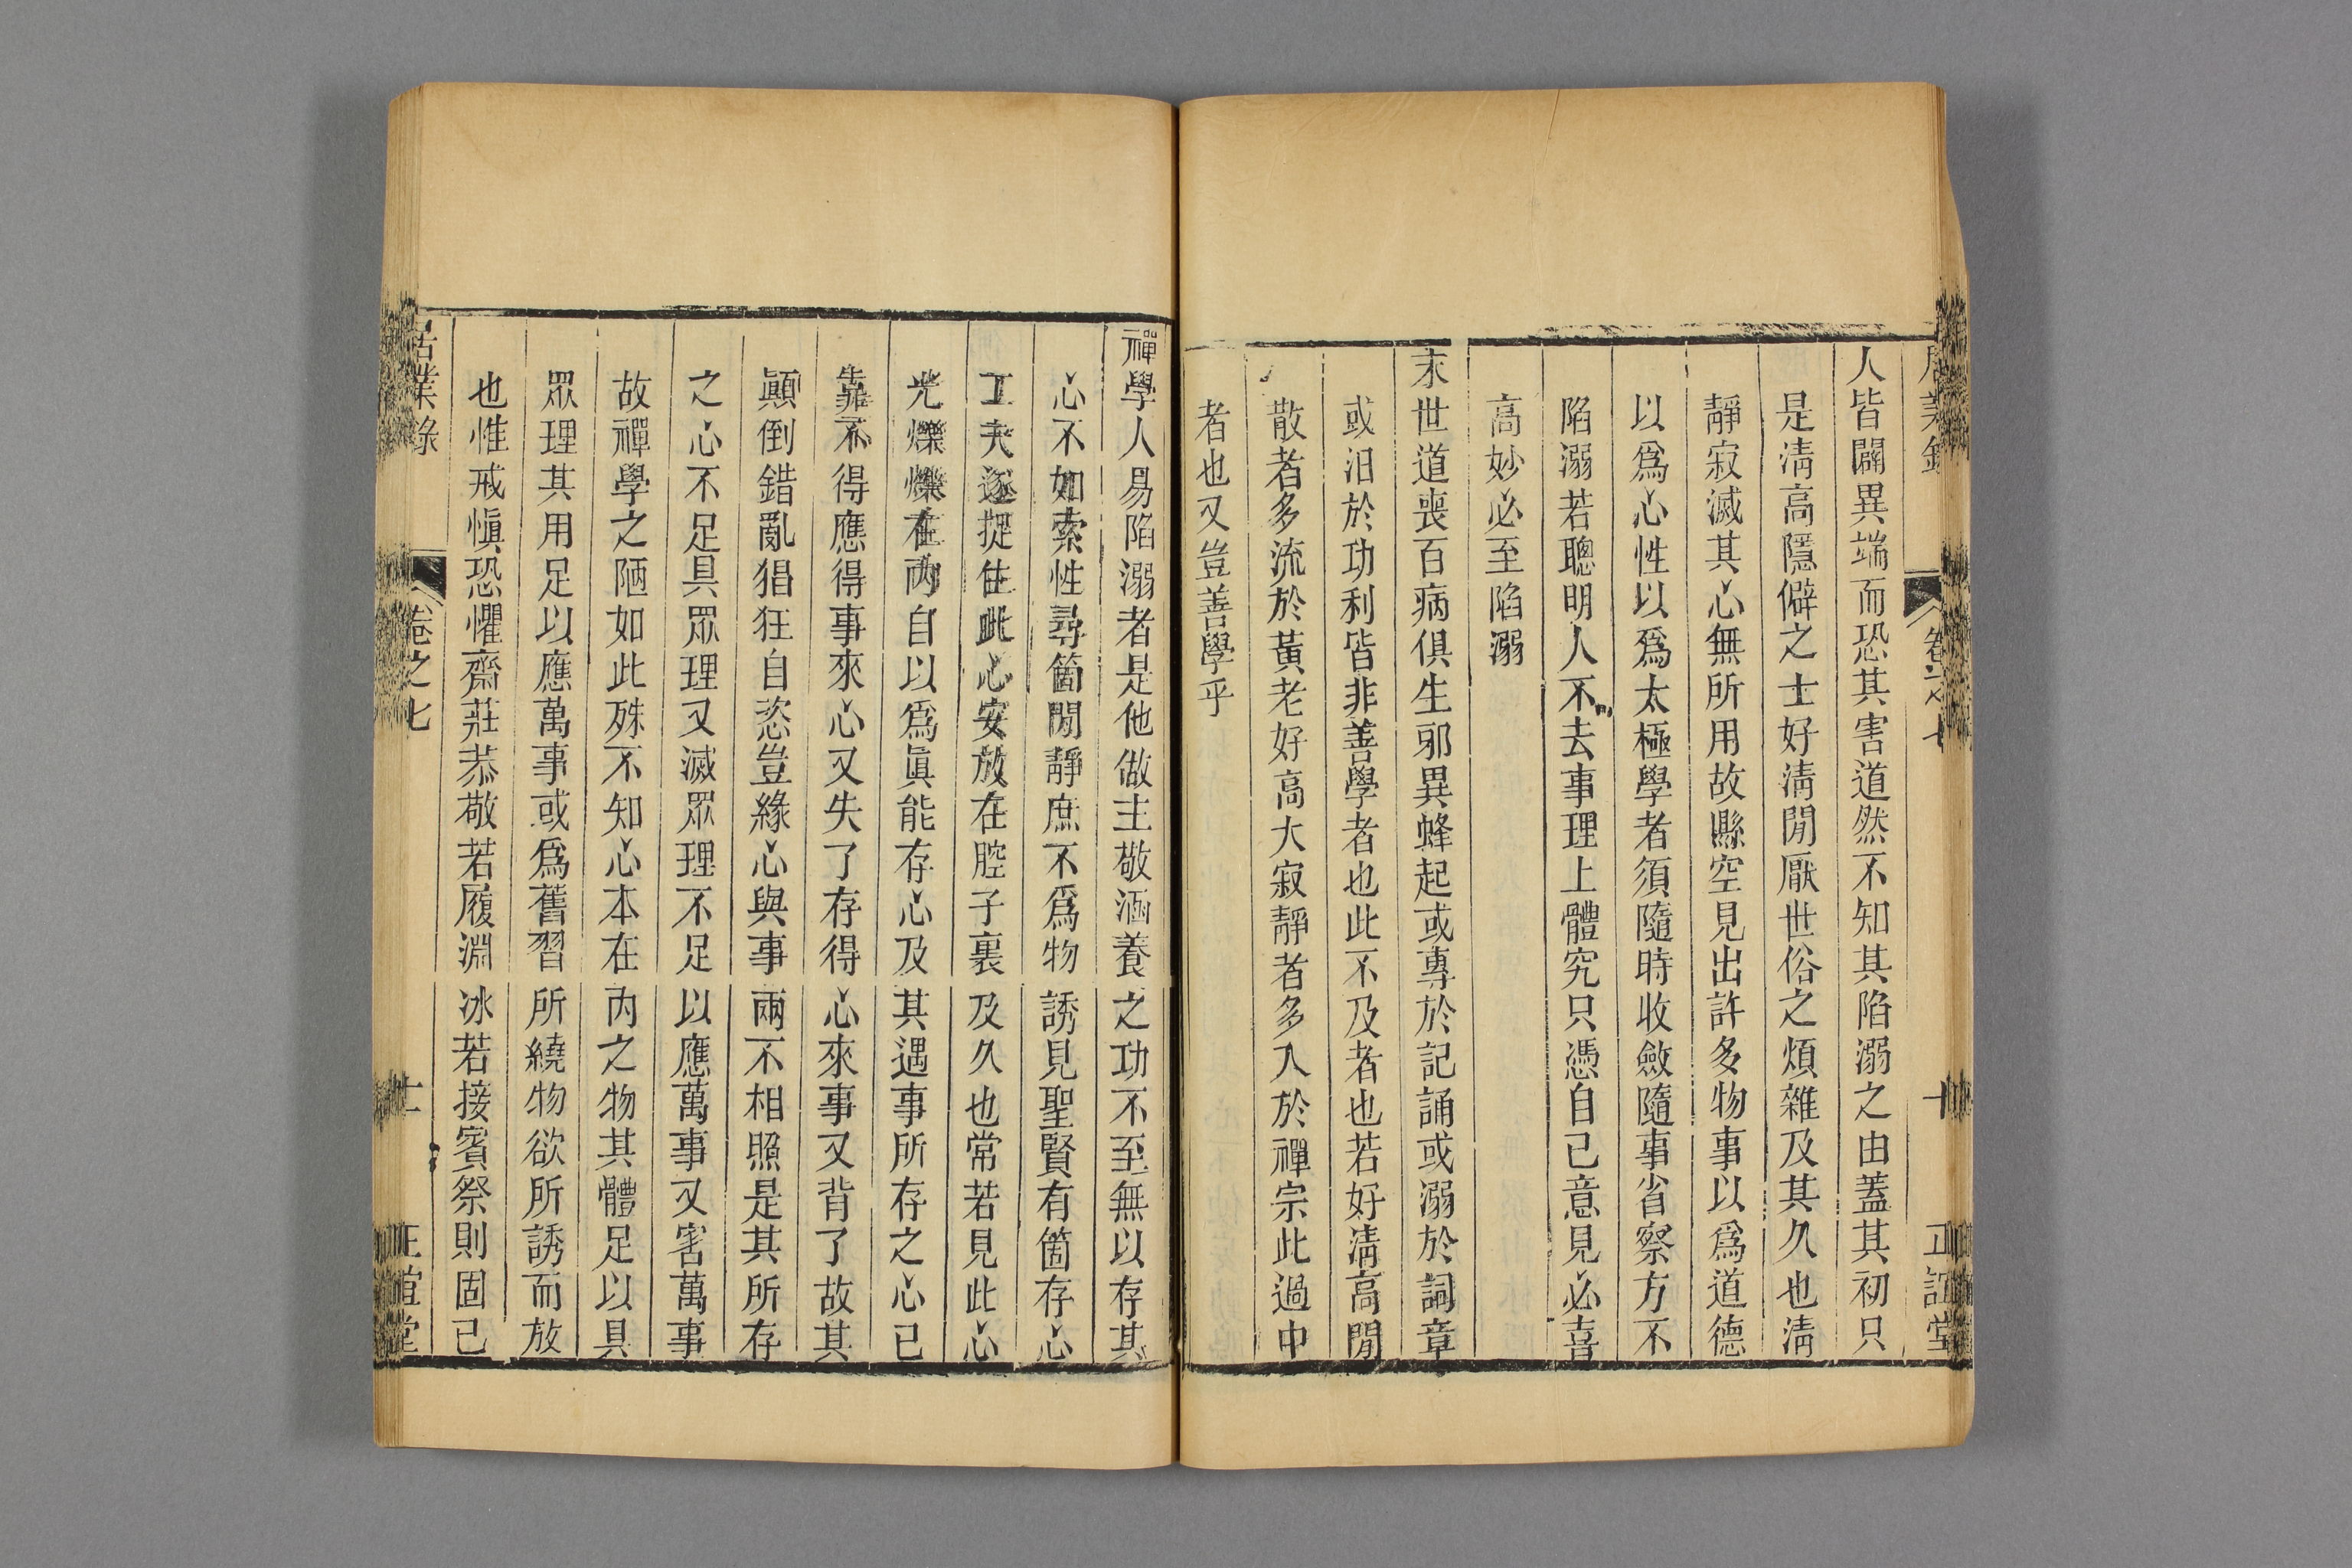 居業錄 卷之七 十 正誼堂
人皆闢異端而恐其害道然不知其陷溺之由蓋其初只
是淸高隱僻之士好淸閒厭世俗之煩雜及其久也淸
靜寂滅其心無所用故縣空見出許多物事以爲道德
以爲心性以爲太極學者須隨時收斂隨事省察方不
陷溺若聰明人不去事理上體究只憑自已意見必喜
高妙必至陷溺
末世道喪百病俱生邪異蜂起或專於記誦或溺於詞章
或汨於功利皆非善學者也此不及者也若好淸高閒
散者多流於黃老好高大寂靜者多入於禪宗此過中
者也又豈善學乎
禪學人易陷溺者是他做主敬涵養之功不至無以存其
心不如索性尋箇閒靜庶不爲物誘見聖賢有箇存心
工夫遂捉住此心安放在腔子裏及久也常若見此心
光爍爍在內自以爲眞能存心及其遇事所存之心已
靠不得應得事來心又失了存得心來事又背了故其
顚倒錯亂猖狂自恣豈緣心與事兩不相照是其所存
之心不足具眾理又滅眾理不足以應萬事又害萬事
故禪學之陋如此殊不知心本在內之物其體足以具
眾理其用足以應萬事或爲舊習所繞物欲所誘而放
也惟戒愼恐懼齋莊恭敬若履淵冰若接賓祭則固已
居業錄 卷之七 十一 正誼堂